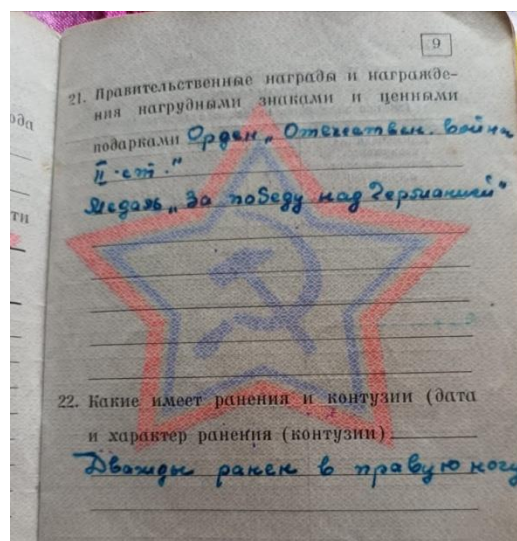 9
21. Правительственные награды и награжде-
ния нагрудными знаками и ценными
подарками Орден „Отечествен. война
II-ст."
Медаль „За победу над Германией"
22. Какие имеет ранения и контузии (дата
и характер ранения (контузии)
Дважды ранен в правую ногу
ода
ти